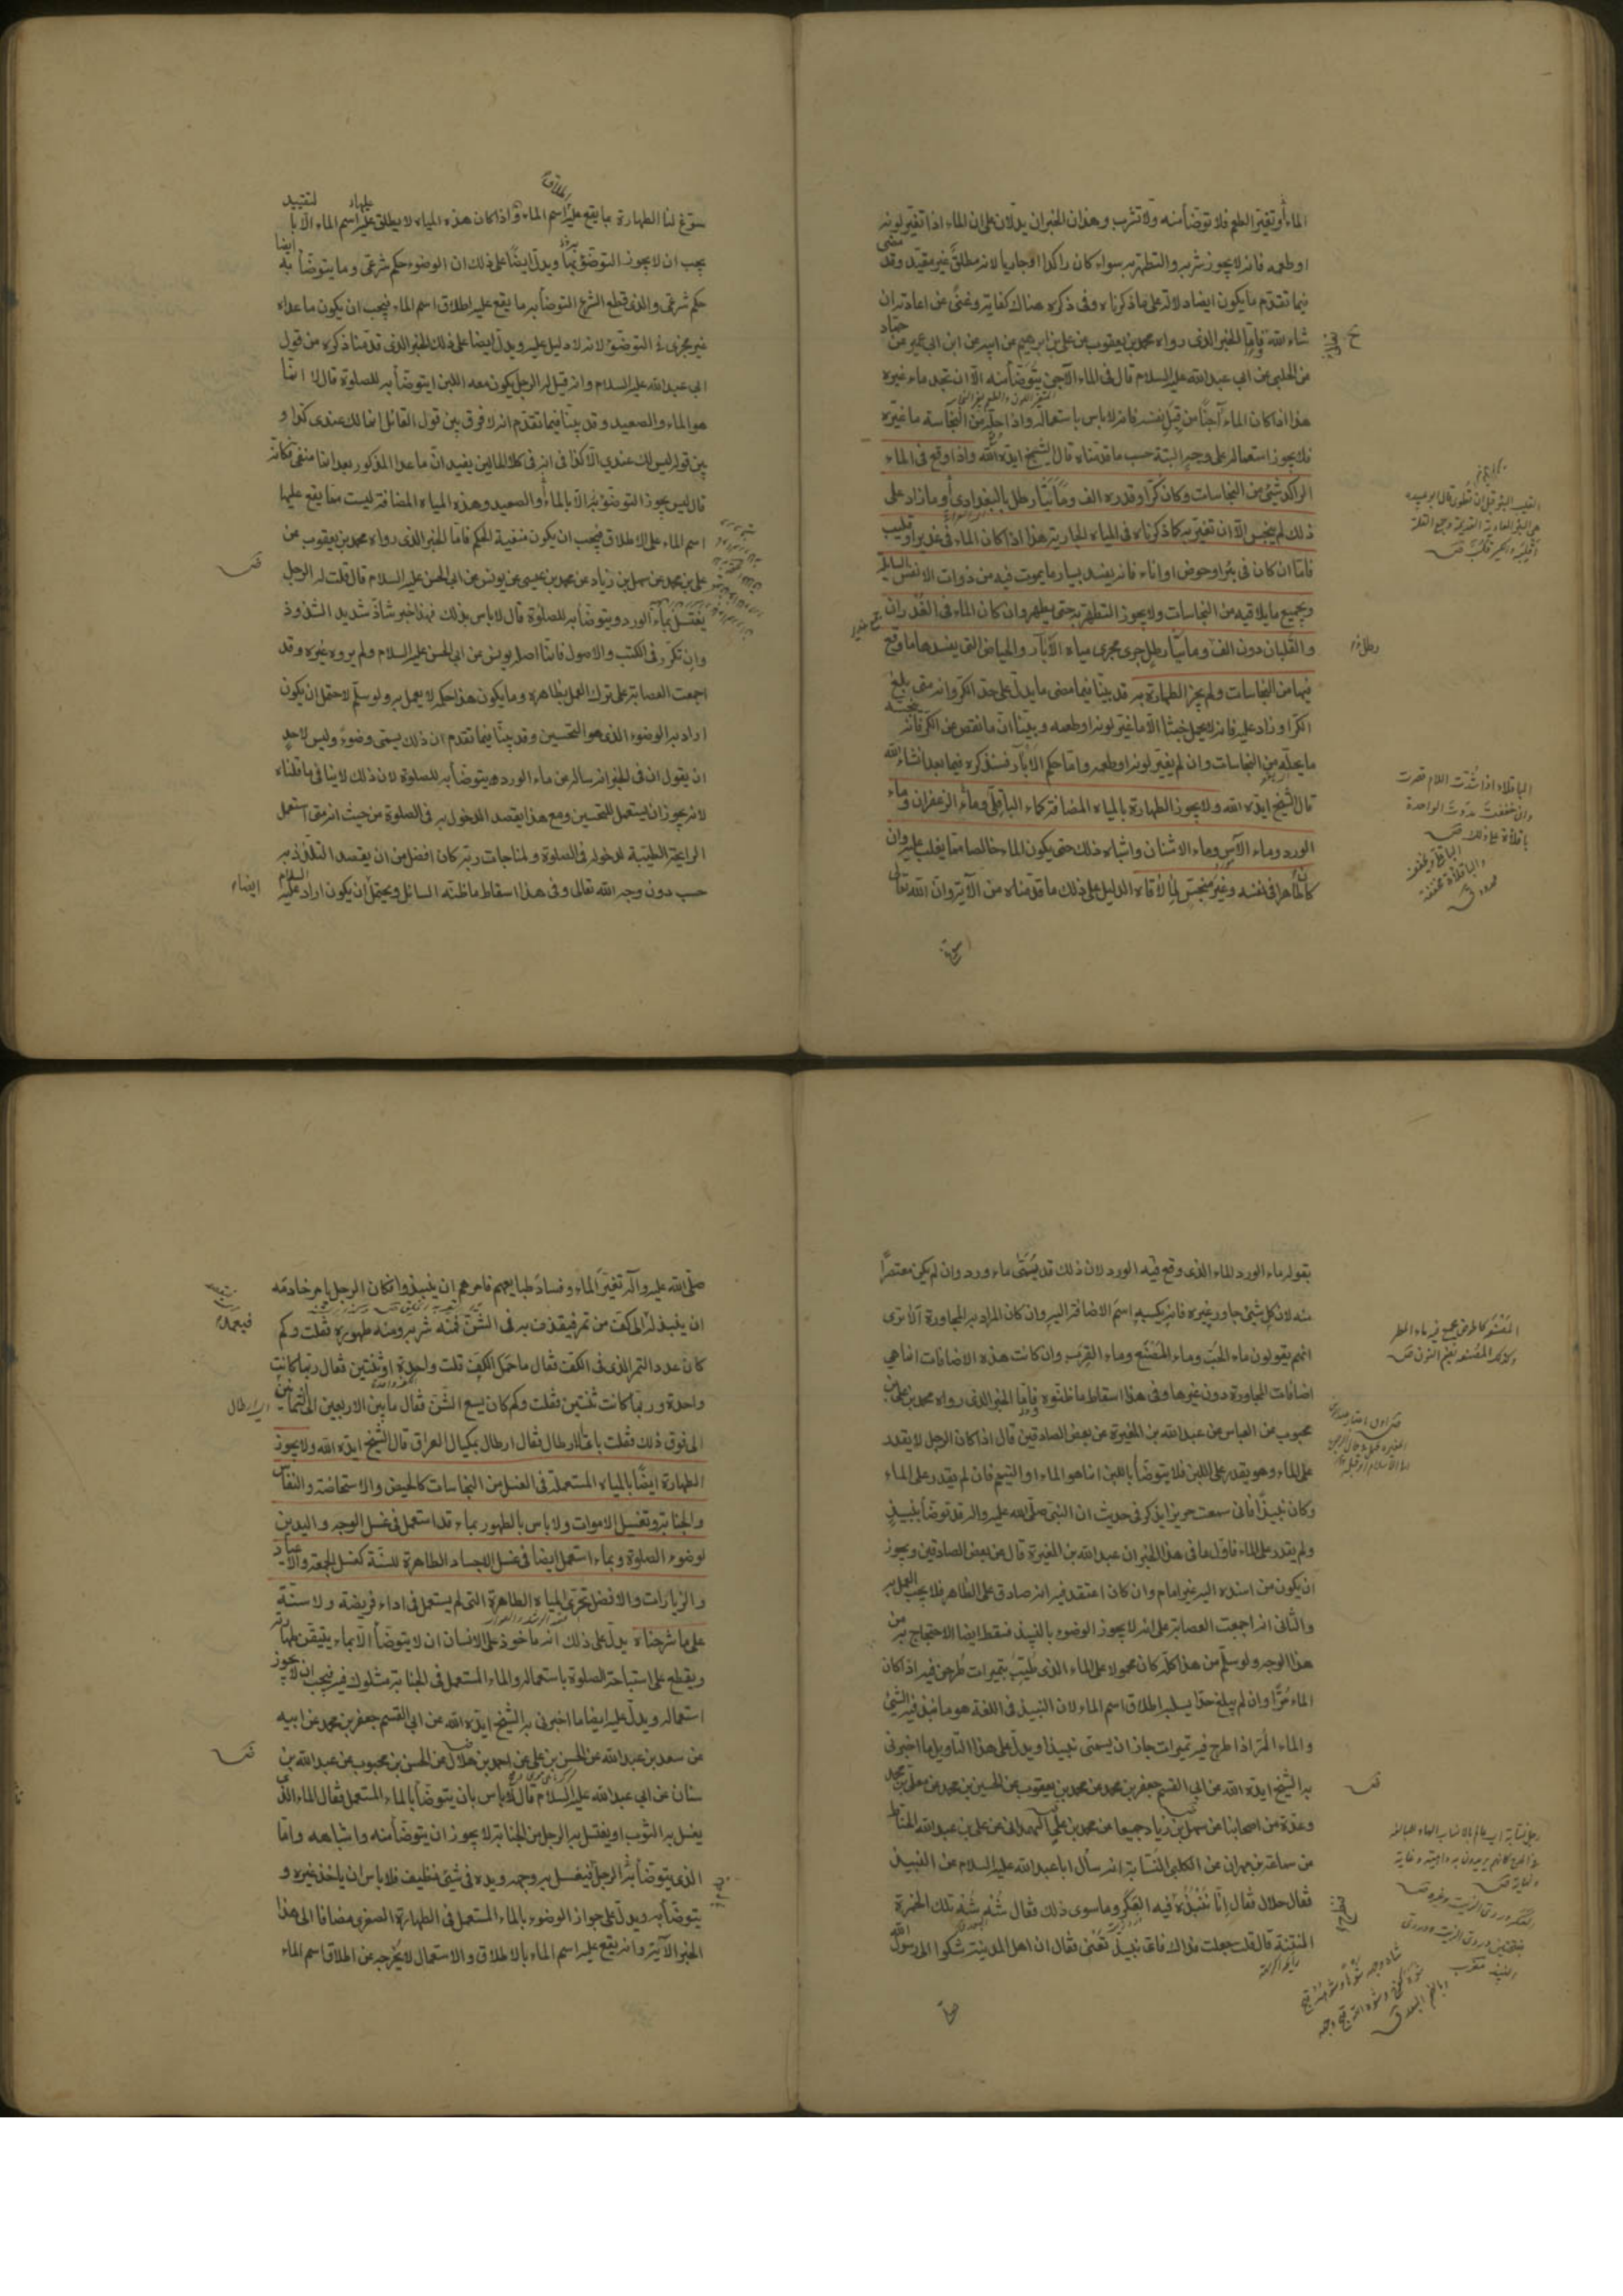 الماء أو تغير الطعم فلا توضأ منه ولا تشرب وهذان الخبران يدلان على ان الماء اذا تغير لونه
او طعمه فانه لا يجوز شربه والتطهر به سواء كان راكدا او جاريا لانه مطلق غير مقيد وقد مضى
فيما تقدم ما يكون ايضا دلالة على ما ذكرناه وفى ذكره هناك كفاية وغنى عن اعادته ان
شاء الله فاما الخبر الذى رواه محمد بن يعقوب عن على بن ابرهيم عن ابيه عن ابن ابى عمير عن حماد
عن الحلبى عن ابى عبد الله عليه السلام قال فى الماء الآجن يتوضأ منه الا ان تجد ماء غيره
هذا اذا كان الماء آجنا من قبل نفسه فانه لا باس باستعماله واذا حله من النجاسة ما غيره
فلا يجوز استعماله على وجه البتة حسب ما قدمناه قال الشيخ ايده الله واذا وقع فى الماء
الراكد شئ من النجاسات وكان كرا وقدره الف ومائتا رطل بالبغدادى وما زاد على
ذلك لم ينجس الا ان تغير به كما ذكرناه فى المياه الجارية هذا اذا كان الماء فى غدير او قليب
فاما ان كان فى بئر او حوض او اناء فانه يفسد بسائر ما يموت فيه من ذوات الانفس السائلة
وبجميع ما يلاقيه من النجاسات ولا يجوز التطهر به حتى يطهر وان كان الماء فى الغدران
والقلبان دون الف ومأتى رطل جرى مجرى مياه الآبار والحياض التى يفسدها ما وقع
فيها من النجاسات ولم يجز الطهارة به قد بينا فيما مضى ما يدل على حد الكر وانه متى بلغ
الكر او زاد عليه فانه لا يحمل خبثا الا ما غير لونه او طعمه وبينا ان ما نقص عن الكر فانه ينجسه
ما يحله من النجاسات وان لم يغير لونه او طعمه واما حكم الآبار فسنذكره فيما بعد انشاء الله
قال الشيخ ايده الله ولا يجوز الطهارة بالمياه المضافة كماء الباقلى وماء الزعفران وماء
الورد وماء الآس وماء الاشنان واشباه ذلك حتى يكون الماء خالصا مما يغلب عليه وان
كان طاهرا فى نفسه وغير منجس لما لاقاه الدليل على ذلك ما قدمناه من الآية وان الله تعالى
القليب البئر قبل ان تطوى قال ابو عبيده
هى البئر العادية القديمة وجمع القلة
أقلبة والكثير قلب ص
الباقلاء اذا شددت اللام قصرت
وان خففت مددت الواحدة
باقلاة على ذلك ص
سوغ لنا الطهارة بما يقع عليه اسم الماء واذا كان هذه المياه لا يطلق عليه اسم الماء الا بالتقييد
يجب ان لا يجوز التوضؤ بها ويدل ايضا على ذلك ان الوضوء حكم شرعى وما يتوضأ به ايضا
حكم شرعى والذى قطع الشرع التوضأ به ما يقع عليه اطلاق اسم الماء فيجب ان يكون ما عداه
غير مجزىء التوضؤ لانه لا دليل عليه ويدل ايضا على ذلك الخبر الذى قدمنا ذكره من قول
ابى عبد الله عليه السلام وانه قيل له الرجل يكون معه اللبن ايتوضأ به للصلوة قال لا انما
هو الماء والصعيد وقد بينا فيما تقدم انه لا فرق بين قول القائل انما لك عندى كذا و
بين قوله ليس لك عندى الا كذا فى انه فى كلا الحالين يفيد ان ما عدا المذكور بعد انما منفى فكأنه
قال ليس يجوز التوضؤ الا بالماء أو الصعيد وهذه المياه المضافة ليست مما يقع عليها
اسم الماء على الاطلاق فيجب ان يكون منفية الحكم فاما الخبر الذى رواه محمد بن يعقوب عن
على بن محمد عن سهل بن زياد عن محمد بن عيسى عن يونس عن ابى الحسن عليه السلام قال قلت له الرجل
يغتسل بماء الورد ويتوضأ به للصلوة قال لا باس بذلك فهذا خبر شاذ شديد الشذوذ
وان تكرر فى الكتب والاصول فانما اصله يونس عن ابى الحسن عليه السلام ولم يروه غيره وقد
اجمعت العصابة على ترك العمل بظاهره وما يكون هذا حكمه لا يعمل به ولو سلم لاحتمل ان يكون
اراد به الوضوء الذى هو التحسين وقد بينا فيما تقدم ان ذلك يسمى وضوءً وليس لاحد
ان يقول ان فى الخبر انه ساله عن ماء الورد يتوضأ به للصلوة لان ذلك لا ينافى ما قلناه
لانه يجوز ان يستعمل للتحسين ومع هذا يقصد الدخول به فى الصلوة من حيث انه متى استعمل
الرايحة الطيبة لدخوله فى الصلوة ولمناجات ربه كان افضل من ان يقصد التلذذ به
حسب دون وجه الله تعالى وفى هذا اسقاط ما ظنه السائل ويحتمل ان يكون اراد عليه السلام
ايضاء
بقوله ماء الورد الماء الذى وقع فيه الورد لان ذلك قد يسمى ماء ورد وان لم يكن معتصرا
منه لان كل شئ جاور غيره فانه يكسبه اسم الاضافة اليه وان كان المراد به المجاورة ألا ترى
انهم يقولون ماء الحب وماء المصنع وماء القرب وان كانت هذه الاضافات انما هى
اضافات المجاورة دون غيرها وفى هذا اسقاط ما ظنوه فاما الخبر الذى رواه محمد بن على بن
محبوب عن العباس عن عبد الله بن المغيرة عن بعض الصادقين قال اذا كان الرجل لا يقدر
على الماء وهو يقدر على اللبن فلا يتوضأ باللبن انما هو الماء او التيمم فان لم يقدر على الماء
وكان نبيذا فانى سمعت حريزا يذكر فى حديث ان النبى صلى الله عليه وآله قد توضأ بنبيذ
ولم يقدر على الماء فاول ما فى هذا الخبر ان عبد الله بن المغيرة قال عن بعض الصادقين ويجوز
ان يكون من اسنده اليه غير امام وان كان اعتقد فيه انه صادق على الظاهر فلا يجب العمل به
والثانى انه اجمعت العصابة على انه لا يجوز الوضوء بالنبيذ فسقط ايضا الاحتجاج به من
هذا الوجه ولو سلم من هذا كله كان محمولا على الماء الذى طيب بتميرات طرحن فيه اذا كان
الماء مرا وان لم يبلغ حدا يسلبه اطلاق اسم الماء لان النبيذ فى اللغة هو ما نبذ فيه الشئ
والماء المر اذا طرح فيه تميرات جاز ان يسمى نبيذا ويدل على هذا التاويل ما اخبرنى
به الشيخ ايده الله عن ابى القسم جعفر بن محمد عن محمد بن يعقوب عن الحسين بن محمد عن معلى بن محمد
وعدة من اصحابنا عن سهل بن زياد جميعا عن محمد بن على الهمدانى عن على بن عبد الله الحناط
عن سماعة بن مهران عن الكلبى النسابة انه سأل ابا عبد الله عليه السلام عن النبيذ
فقال حلال فقال انا ننبذه فيه العكر وما سوى ذلك فقال شه شه تلك الخمرة
المنتنة قال قلت جعلت فداك فاى نبيذ تعنى فقال ان اهل المدينة شكوا الى رسول الله
صلى الله عليه وآله تغير الماء وفساد طبايعهم فامرهم ان ينبذوا فكان الرجل يامر خادمه
ان ينبذ له فيعمد الى كف من تمر فيقذف به فى الشن فمنه شربه ومنه طهوره فقلت وكم
كان عدد التمر الذى فى الكف فقال ما حمل الكف قلت واحدة او ثنتين فقال ربما كانت
واحدة وربما كانت ثنتين فقلت وكم كان يسع الشن فقال ما بين الاربعين الى الثمانين
الى فوق ذلك فقلت باى الارطال فقال ارطال بمكيال العراق قال الشيخ ايده الله ولا يجوز
الطهارة ايضا بالمياه المستعملة فى الغسل من النجاسات كالحيض والاستحاضة والنفاس
والجنابة وتغسيل الاموات ولا باس بالطهور بماء قد استعمل فى غسل الوجه واليدين
لوضوء الصلوة وبماء استعمل ايضا فى غسل الاجساد الطاهرة للسنة كغسل الجمعة والاعياد
والزيارات والافضل تحرى المياه الطاهرة التى لم يستعمل فى اداء فريضة ولا سنة
على ما شرحناه يدل على ذلك انه ماخوذ على الانسان ان لا يتوضأ الا بماء يتيقن طهارته
ويقطع على استباحة الصلوة باستعماله والماء المستعمل فى الجنابة مشكوك فيه فيجب ان لا يجوز
استعماله ويدل عليه ايضا ما اخبرنى به الشيخ ايده الله عن ابى القسم جعفر بن محمد عن ابيه
عن سعد بن عبد الله عن الحسن بن على عن احمد بن هلال عن الحسن بن محبوب عن عبد الله بن
سنان عن ابى عبد الله عليه السلام قال لا باس بان يتوضأ بالماء المستعمل فقال الماء الذى
يغسل به الثوب او يغتسل به الرجل من الجنابة لا يجوز ان يتوضأ منه واشباهه واما
الذى يتوضأ به الرجل فيغسل به وجهه ويده فى شئ نظيف فلا باس ان ياخذ غيره و
يتوضأ به ويدل على جواز الوضوء بالماء المستعمل فى الطهارة الصغرى مضافا الى هذا
الخبر الآية وانه يقع عليه اسم الماء بالاطلاق والاستعمال لا يخرجه عن اطلاق اسم الماء